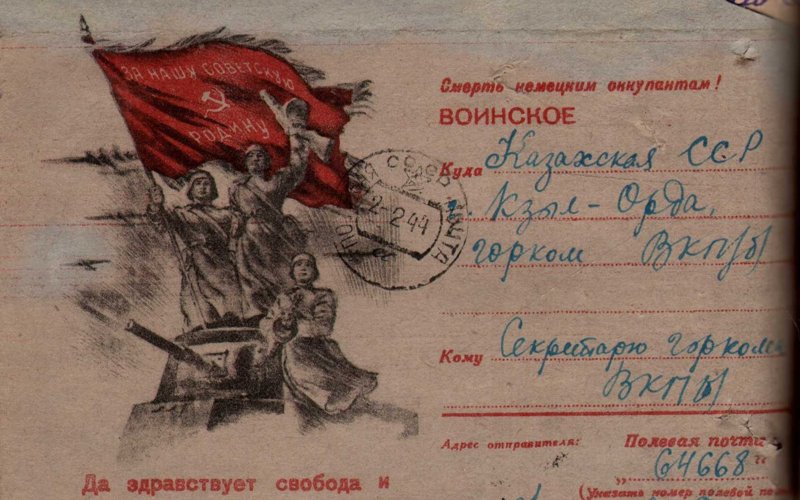 ЗА НАШУ СОВЕТСКУЮ
РОДИНУ
Смерть немецким оккупантам!
ВОИНСКОЕ
Куда Казахская ССР
г. Кзыл-Орда,
горком ВКП/б/
Кому Секретарю горкома
ВКП/б/
Адрес отправителя: Полевая почта
64668
(Указать номер полевой
Да здравствует свобода и
СССР
ПОЧТА
2 44